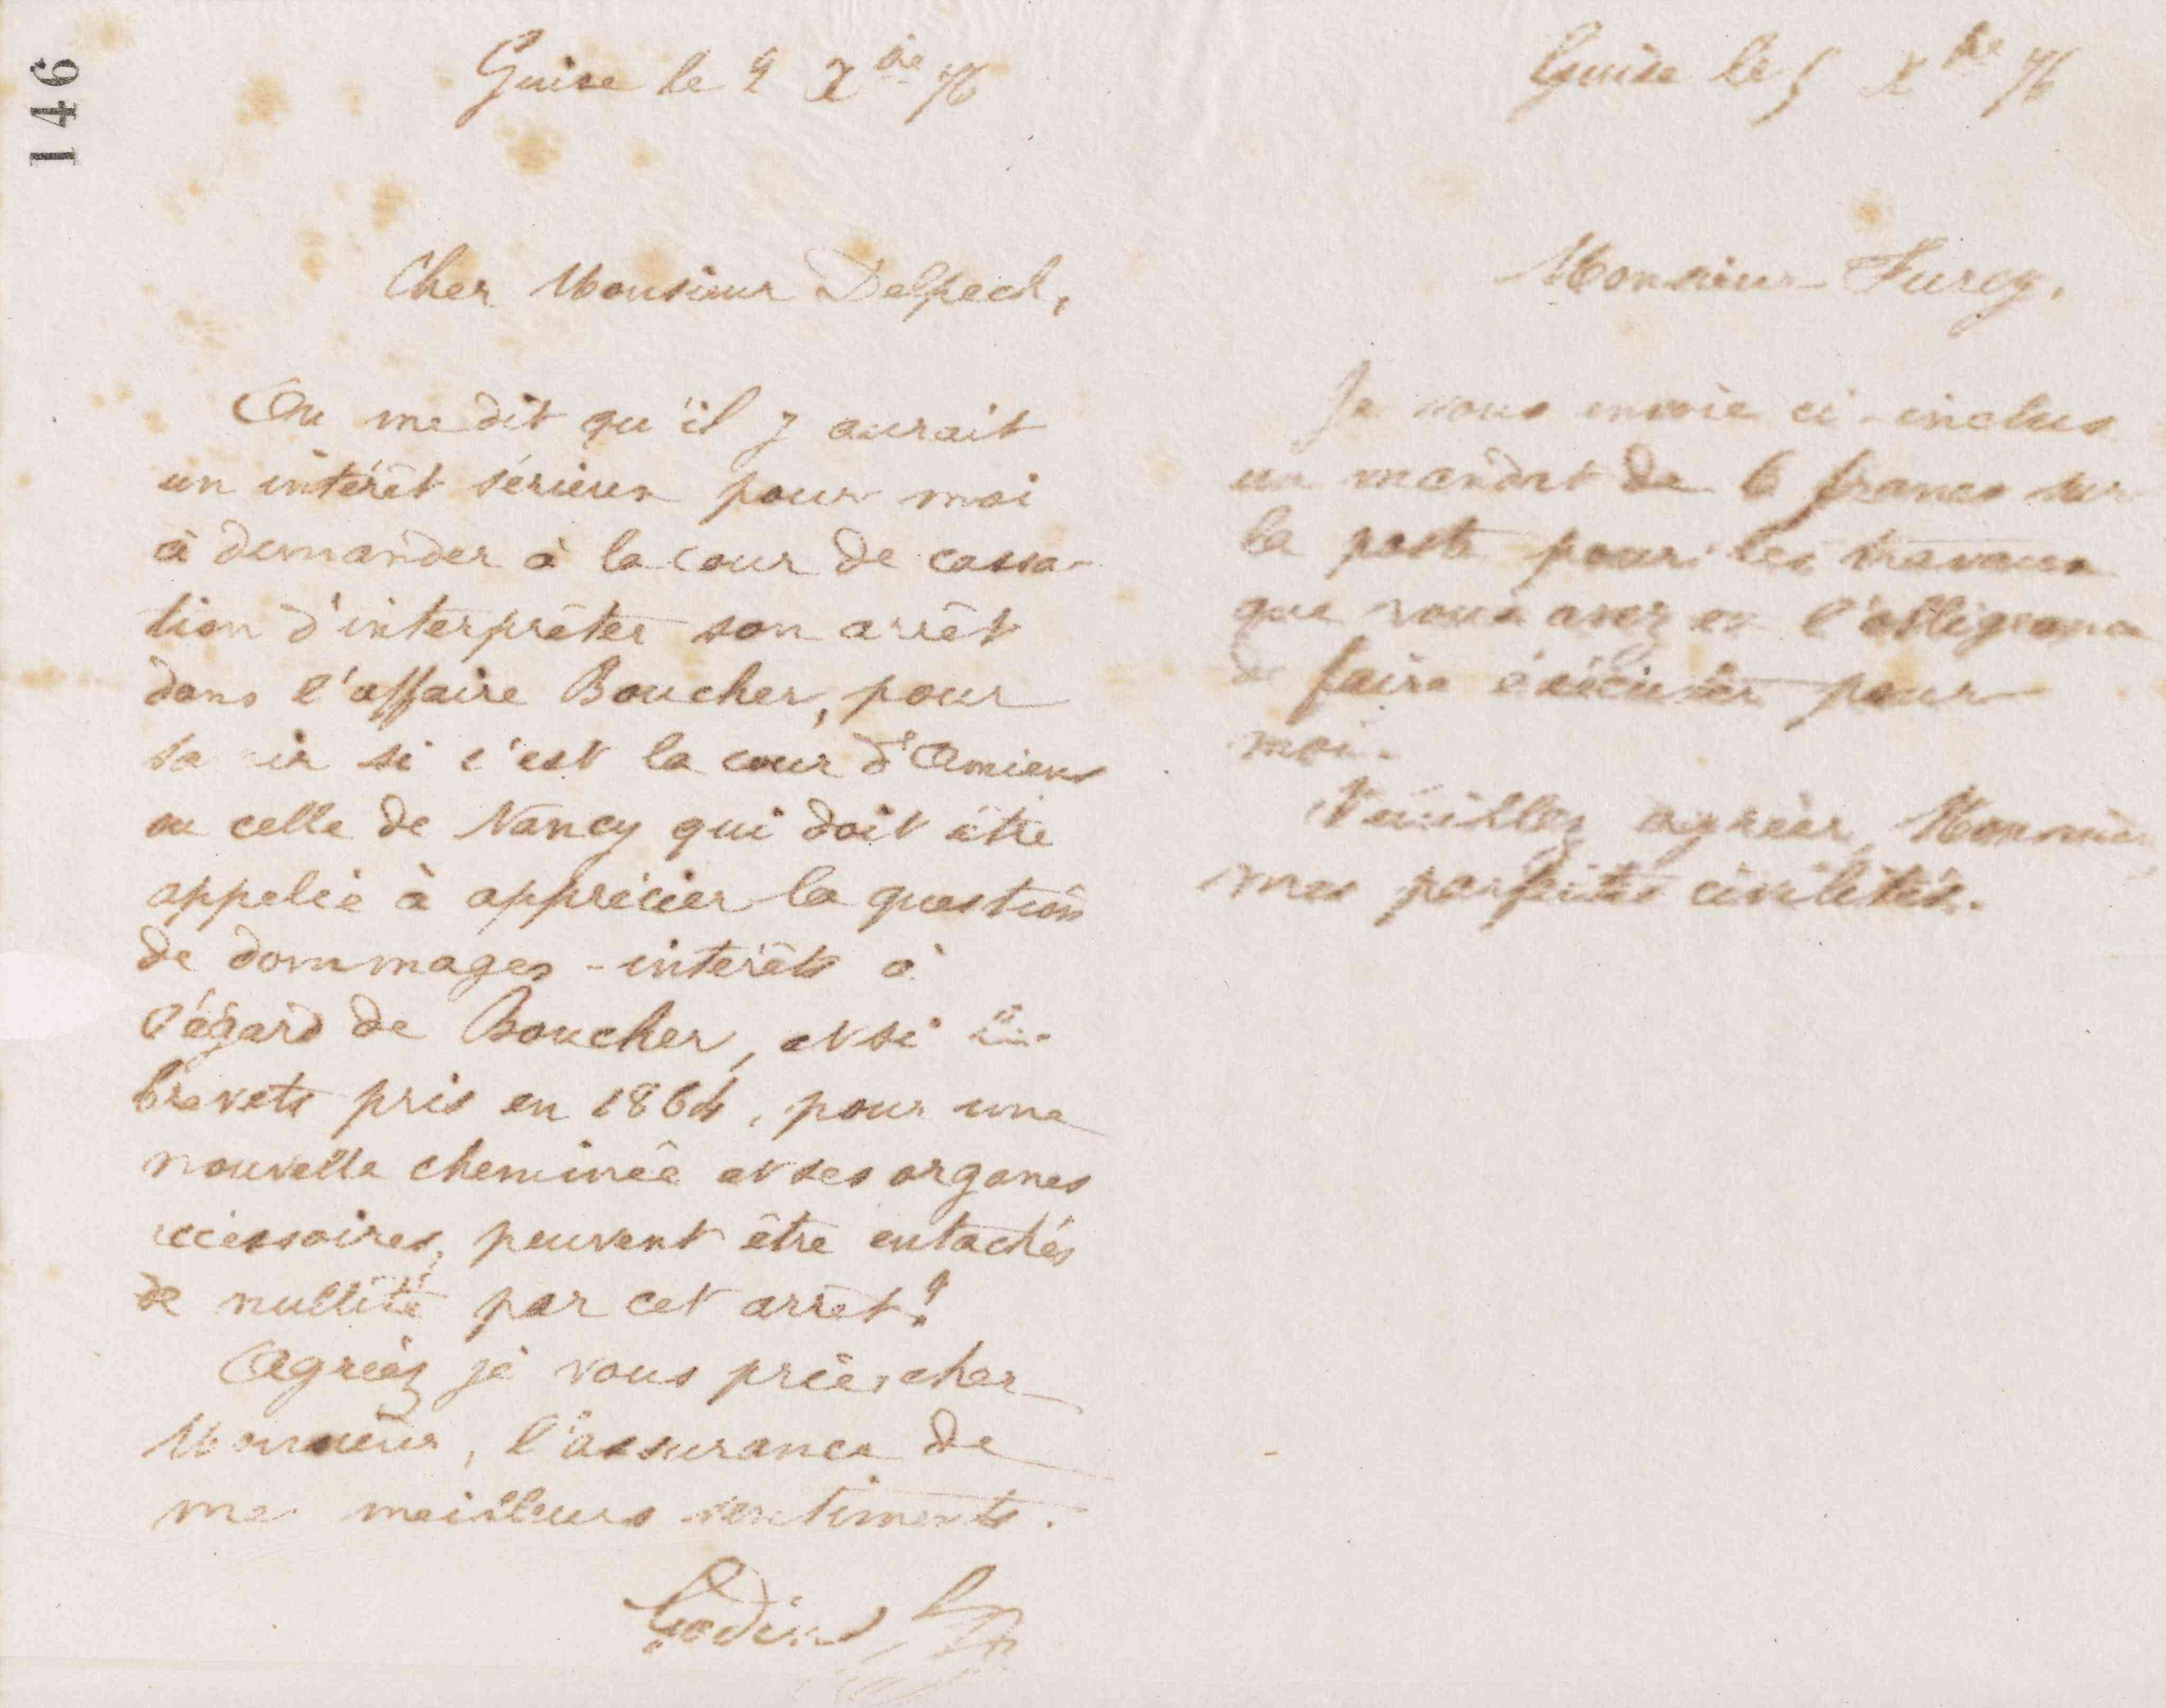 146
Guise le 4 Xbre 76
Cher Monsieur Delpech,
On me dit qu'il y aurait
un intérêt sérieux pour moi
à demander à la cour de cassa-
tion d'interprêter son arrêt
dans l'affaire Boucher, pour
sa ir si c'est la cour d'Amiens
ou celle de Nancy qui doit être
appelée à apprécier la question
de dommages-intérêts à
l'égard de Boucher, et si
brevets pris en 1864, pour une
nouvelle cheminée et ses organes
accessoires, peuvent être entachés
de nullité par cet arrêt?
Agréez je vous prie, cher
Monsieur, l'assurance de
mes meilleurs sentiments.
Godin
Guise le 5 Xbre 76
Monsieur Furcy,
Je vous envoie ci-inclus
un mandat de 6 francs sur
la poste pour les travaux
que vous avez eu l'obligeance
de faire exécuter pour
moi.
Veuillez agréer, Monsieur
mes parfaites civilités.